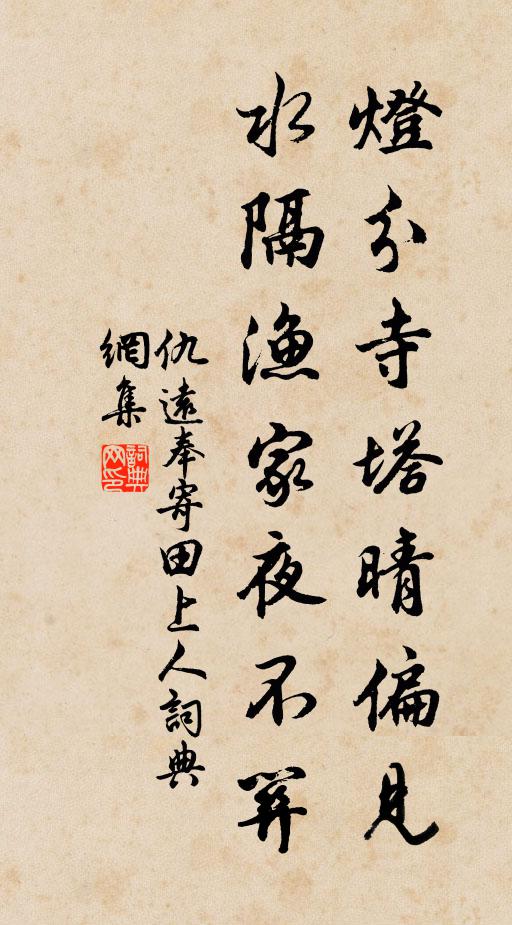 燈分寺塔晴偏見
水隔漁家夜不關
仇遠奉寄田上人詞典
網集
詞典網印